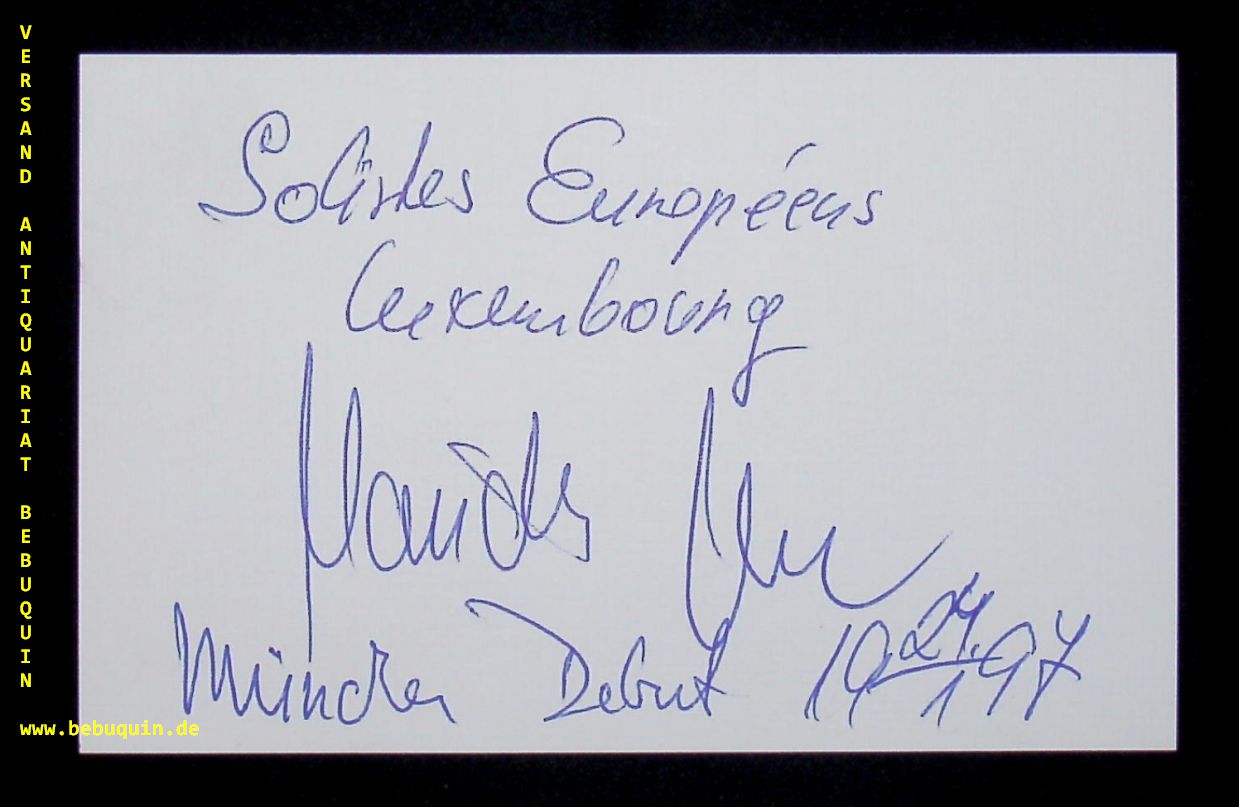 VERSAND ANTIQUARIAT BEBUQUIN
www.bebuquin.de
Solistes Européens
Luxembourg
München Debut 19 24. 1 97